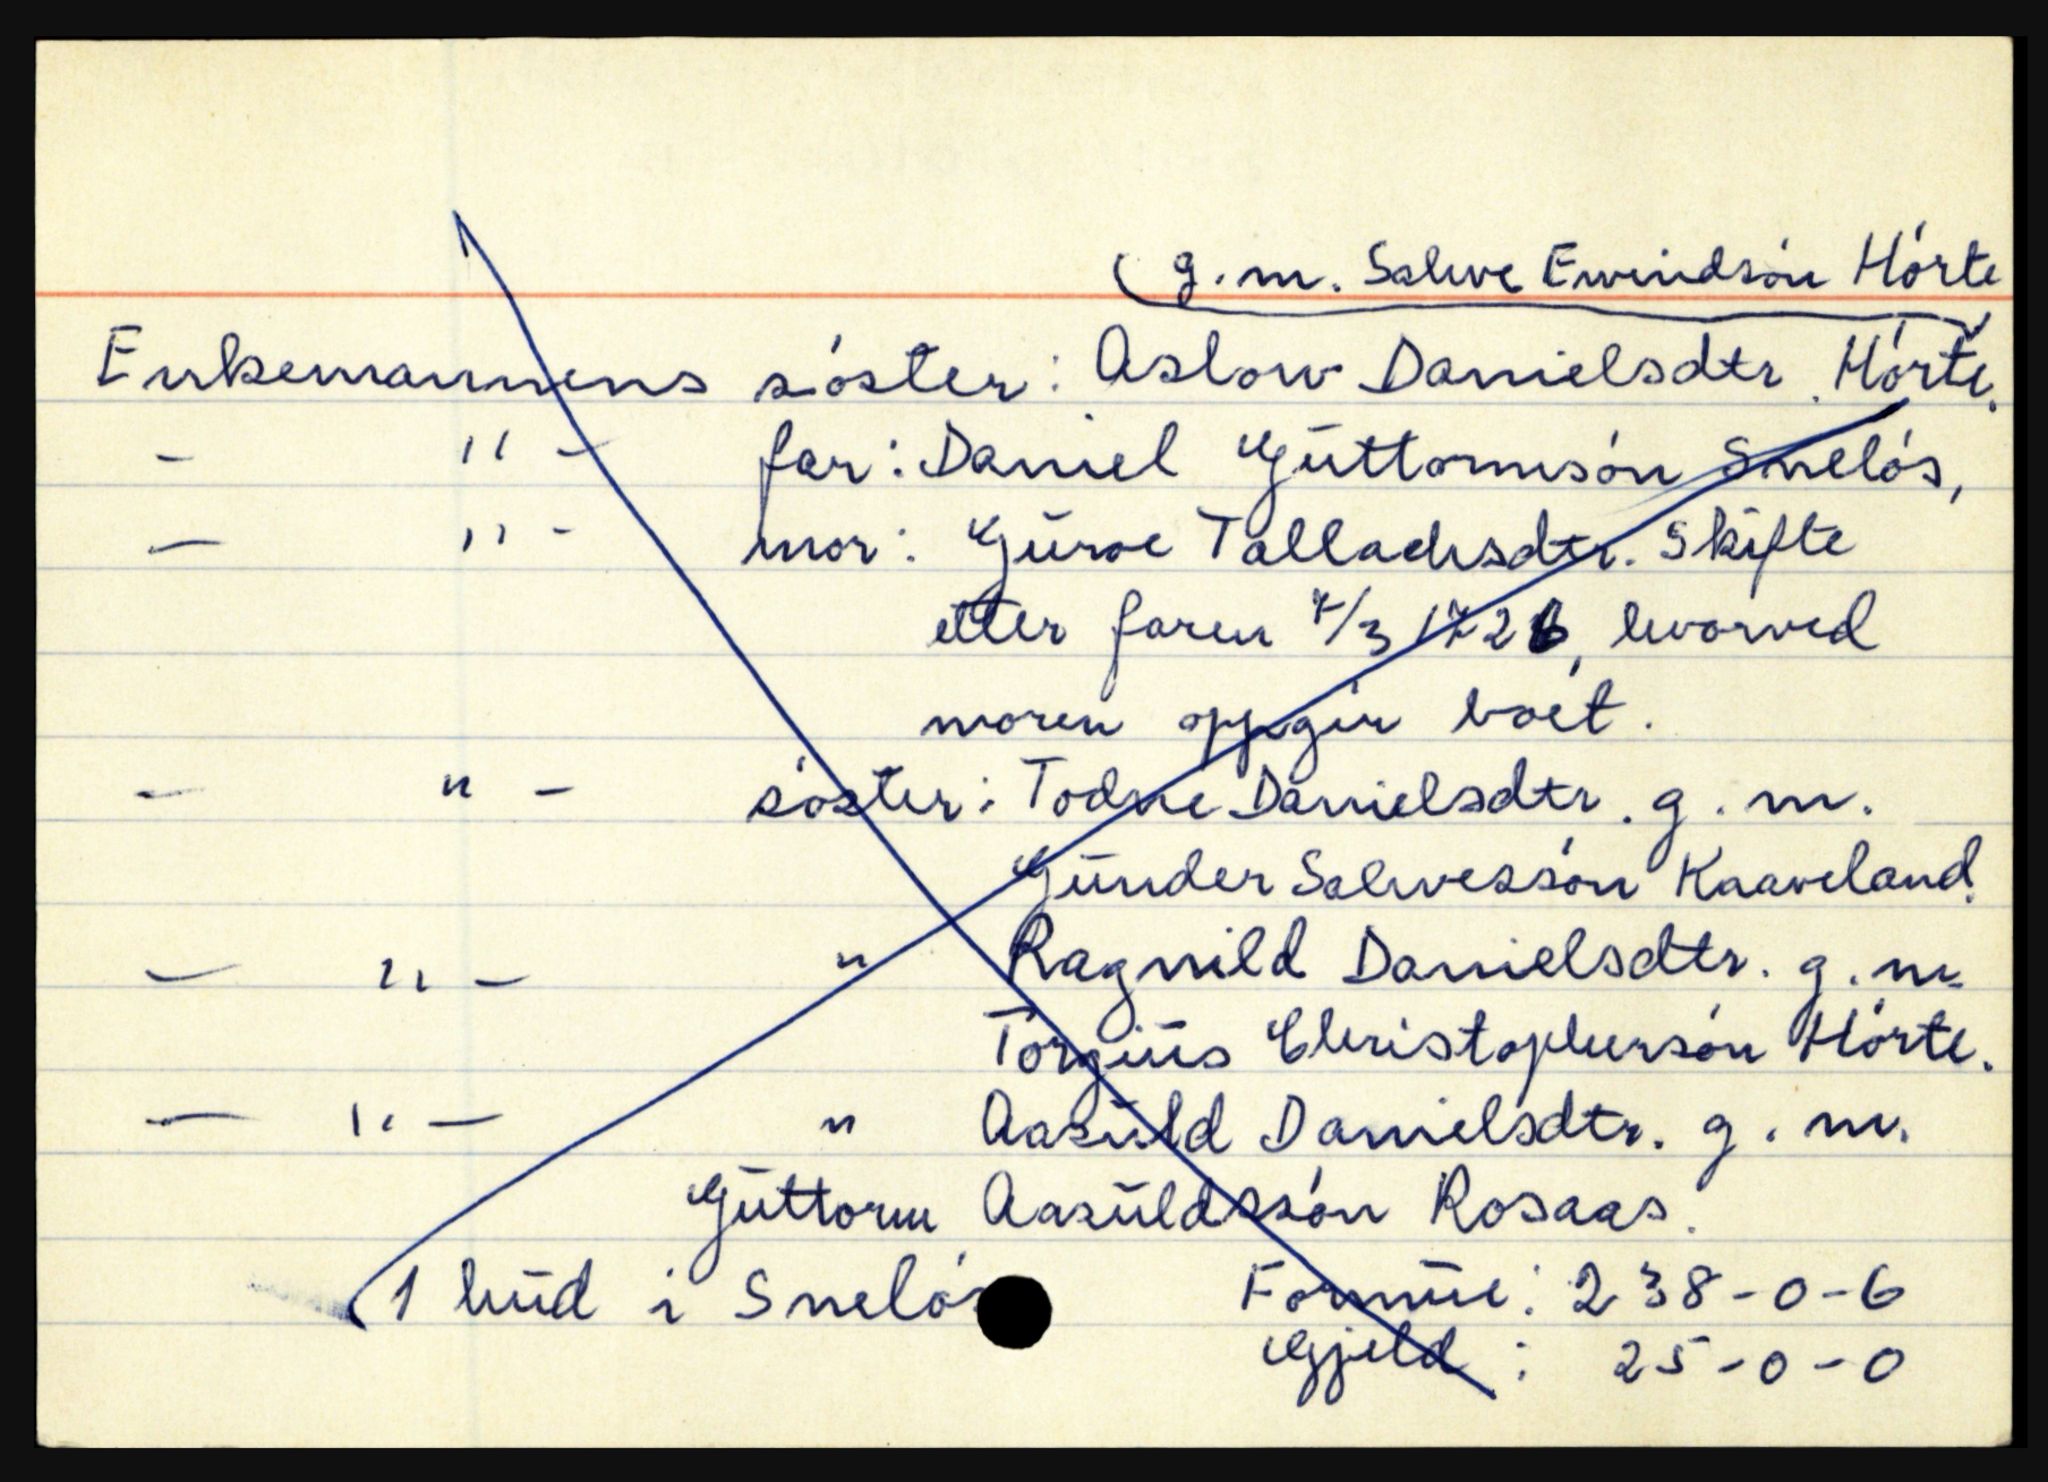 (g.m. Salwe Ewindsón Hórte
Enkemannens sóster: Aslow Danielsdtr. Hórte.
- " - far: Daniel Gūttormsón Snelós,
- " - mor: Gūroe Talladsdtr. Skifte
etter faren 7/3 1726, hvorved
moren oppgir boet.
- " - sóster: Todne Danielsdtr. g.m.
Gūnder Salvessón Kaaveland.
- " - " Ragnild Danielsdtr. g.m.
Torgūis Christophersón Hórte.
- " - " Aasūld Danielsdtr. g.m.
Gūttorm Aasūldssón Rosaas.
1 hūd i Snelós Formūe: 238-0-6
Gjeld: 25-0-0